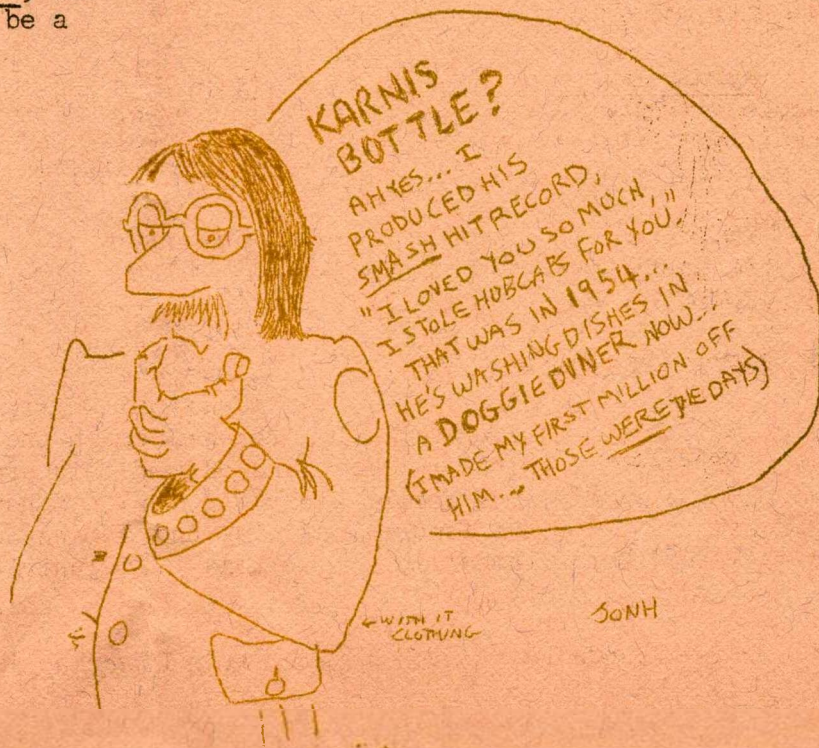 be a
KARNIS
BOTTLE?
AH YES... I
PRODUCED HIS
SMASH HIT RECORD,
"I LOVED YOU SO MUCH,
I STOLE HUBCAPS FOR YOU"
THAT WAS IN 1954...
HE'S WASHING DISHES IN
A DOGGIE DINER NOW...
(I MADE MY FIRST MILLION OFF
HIM... THOSE WERE THE DAYS)
← WITH IT
CLOTHING
JONH